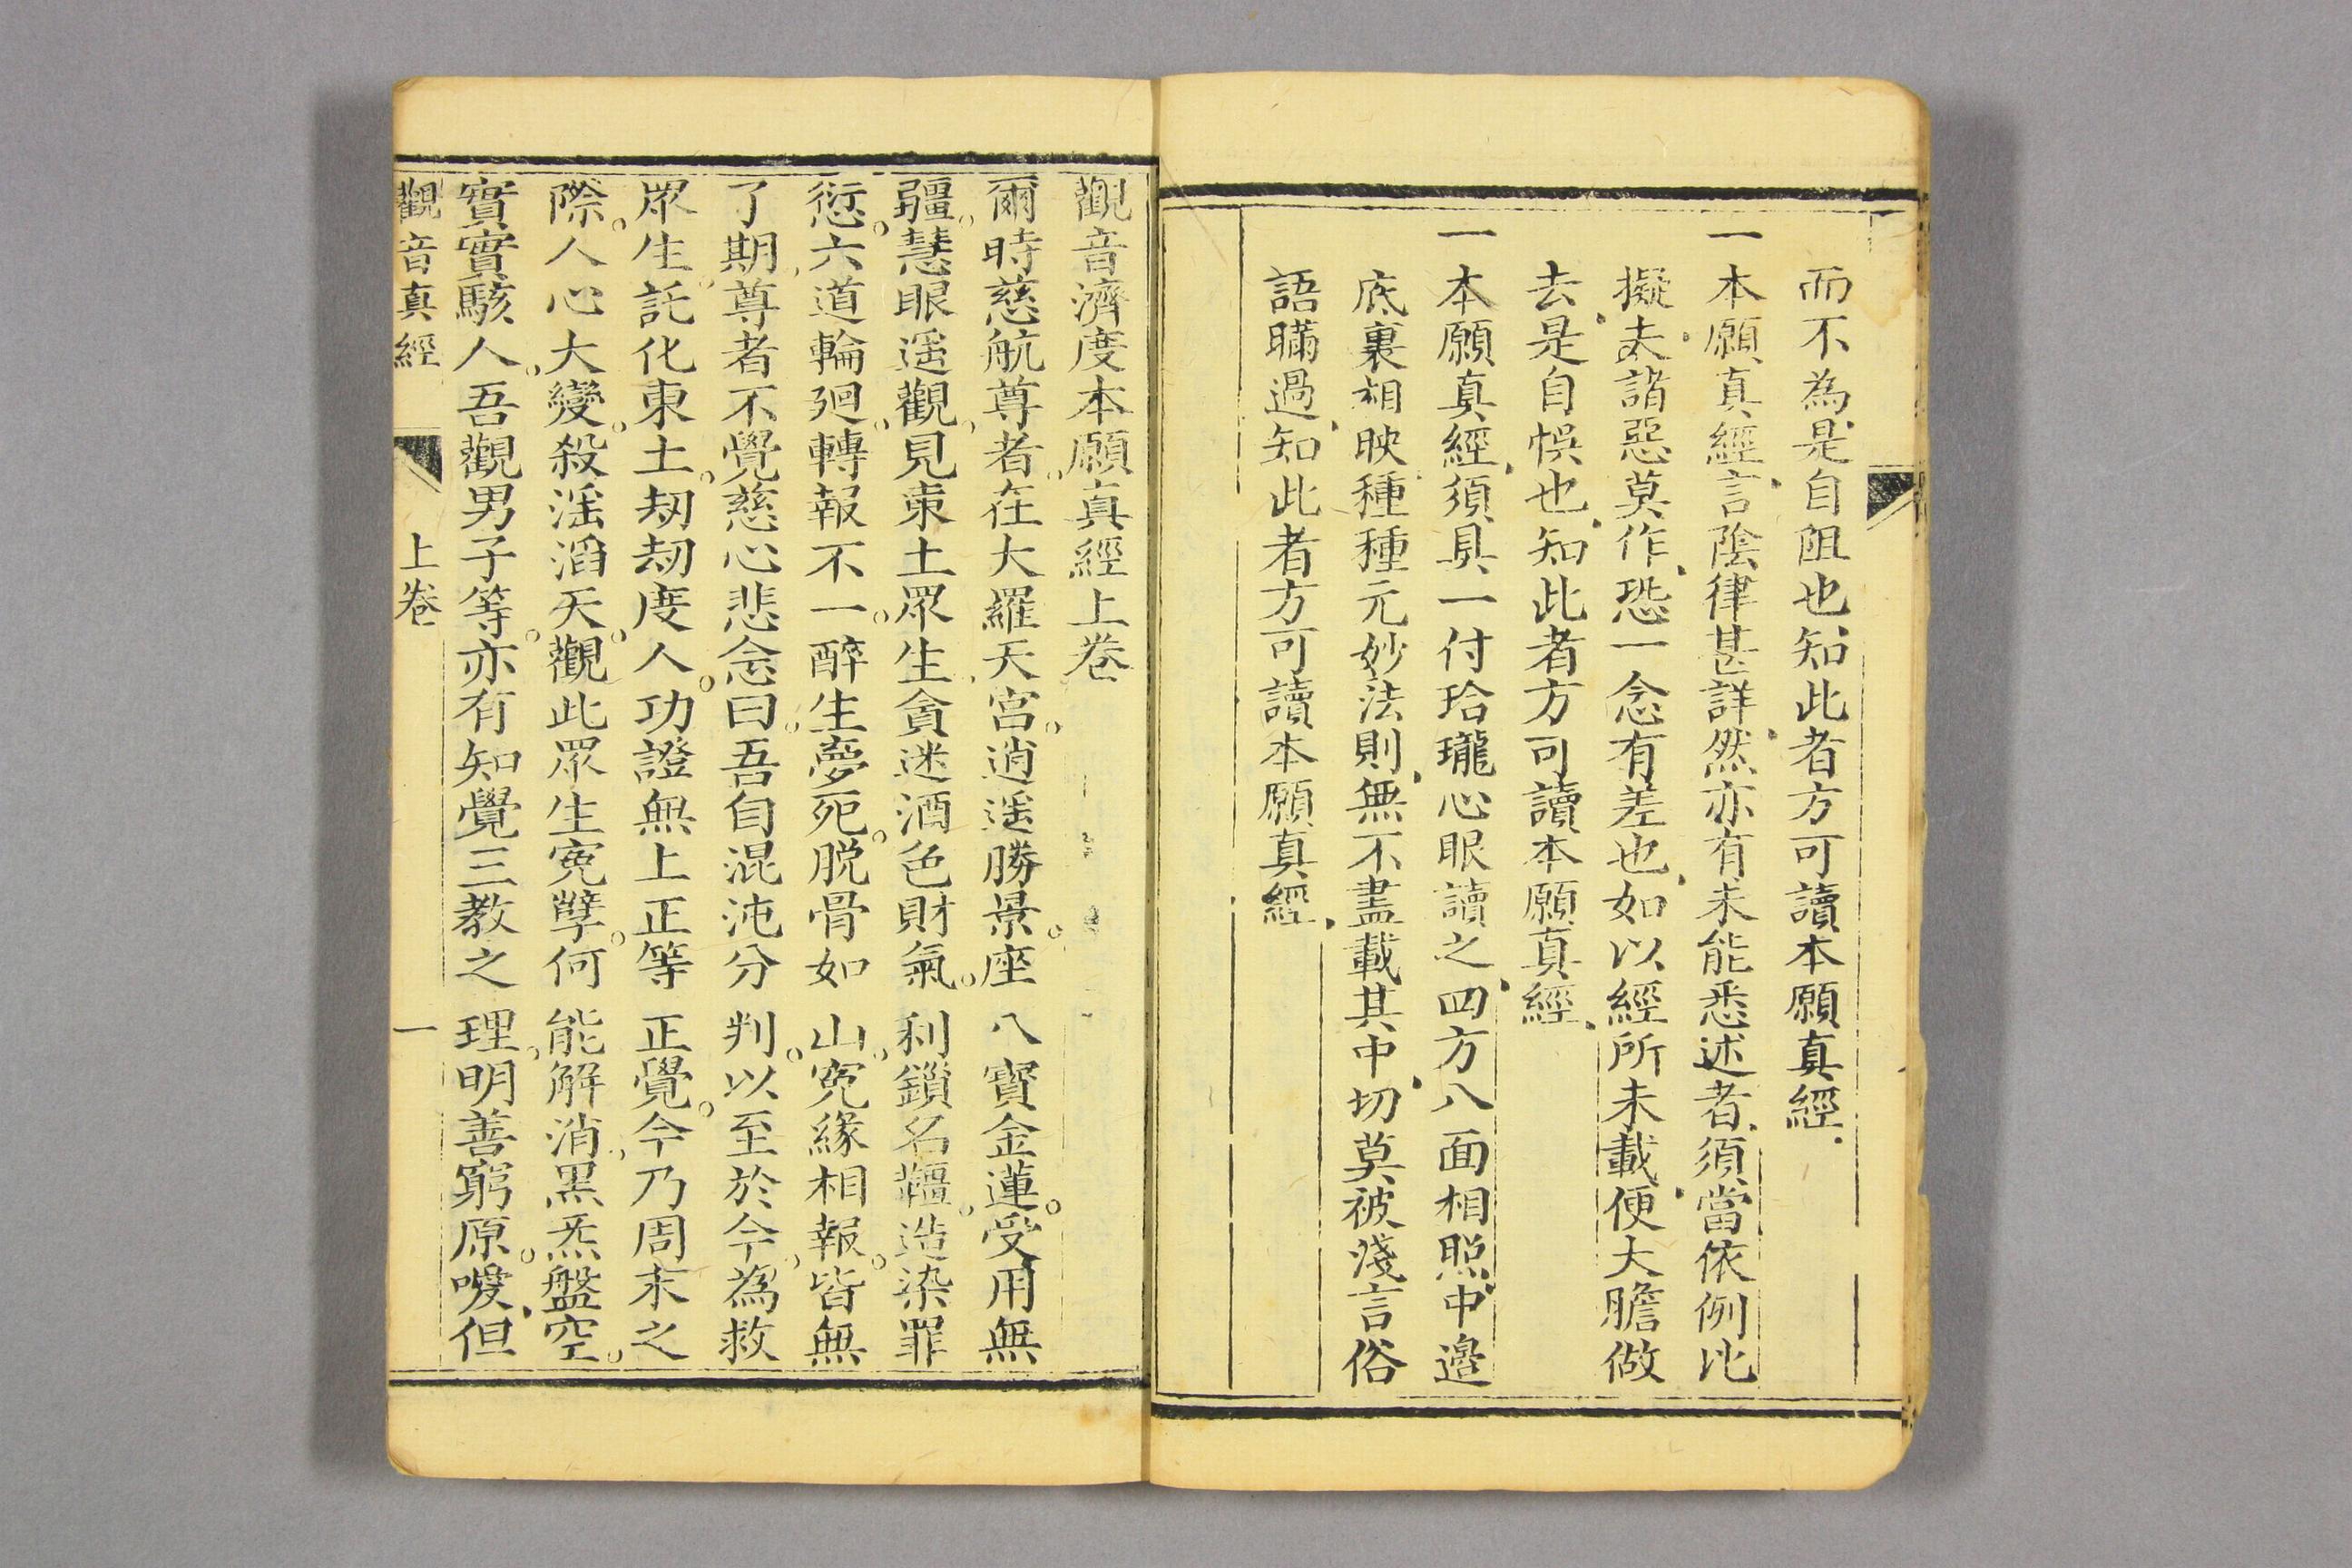 而不為是自阻也知此者方可讀本願真經
一本願真經言陰律甚詳然亦有未能悉述者須當依例比
擬去諸惡莫作恐一念有差也如以經所未載便大膽做
去是自悞也知此者方可讀本願真經
一本願真經須具一付玲瓏心眼讀之四方八面相照中邉
底裏相映種種元妙法則無不盡載其中切莫被淺言俗
語瞞過知此者方可讀本願真經
觀音濟度本願真經上卷
爾時慈航尊者在大羅天宮逍遥勝景座八寳金蓮受用無
疆慧眼遥觀見東土眾生貪迷酒色財氣利鎖名韁造染罪
愆六道輪廻轉報不一醉生夢死脱骨如山寃緣相報皆無
了期尊者不覺慈心悲念曰吾自混沌分判以至於今為救
眾生託化東土刼刼度人功證無上正等正覺今乃周末之
際人心大變殺滛滔天觀此眾生寃孽何能解消黑炁盤空
實實駭人吾觀男子等亦有知覺三教之理明善窮原嗳但
觀音真經 上卷 一